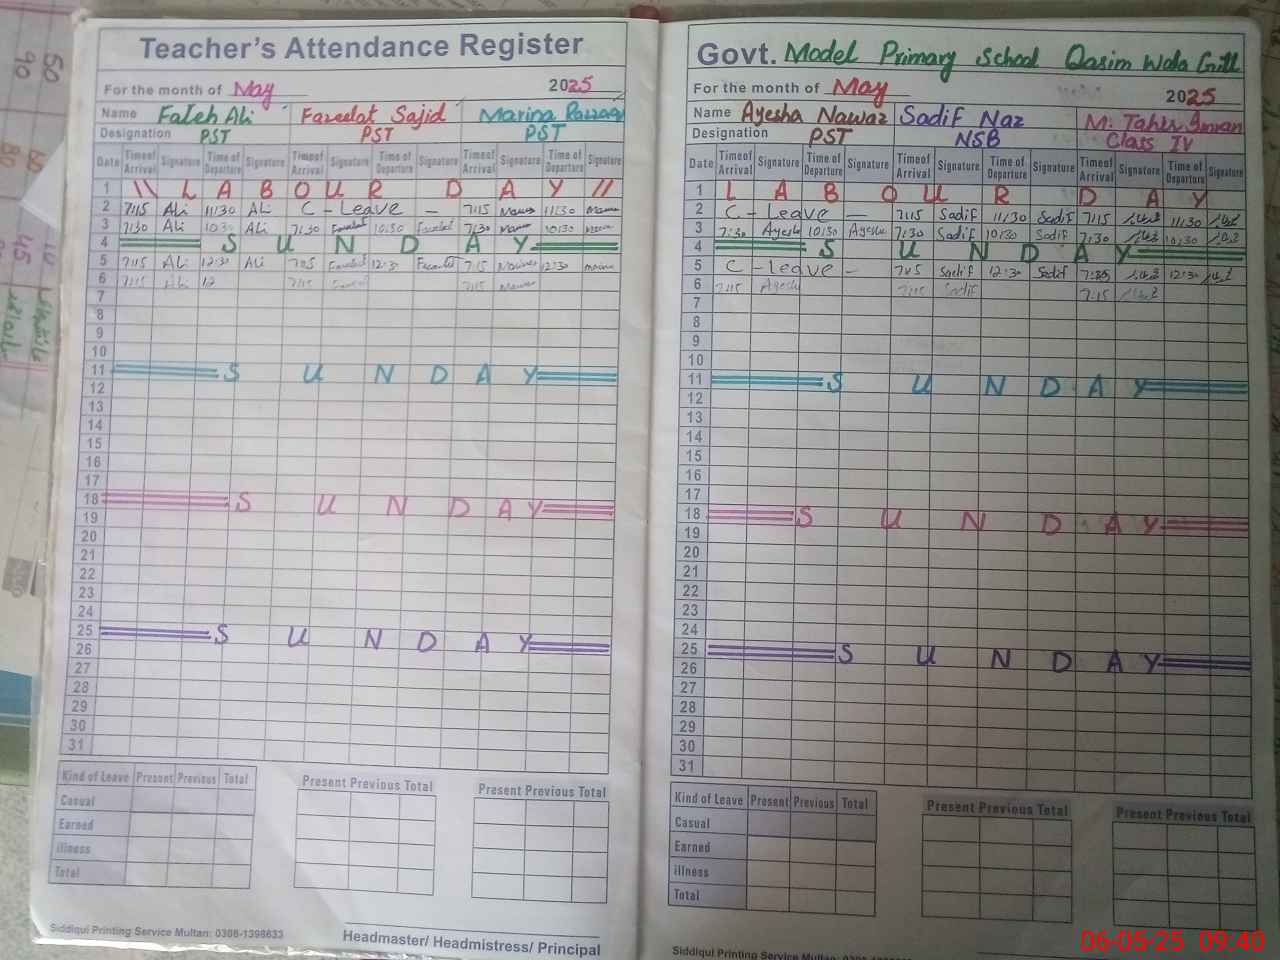 Teacher's Attendance Register
For the month of May 2025
Name Fateh Ali Fazeelat Sajid Marina Razzaq
Designation PST PST PST
Date Time of Arrival Signature Time of Departure Signature Time of Arrival Signature Time of Departure Signature Time of Arrival Signature Time of Departure Signature
1 \\ L A B O U R D A Y //
2 7:15 Ali 11:30 Ali C - Leave - 7:15 11:30
3 7:30 Ali 10:30 Ali 7:30 10:30 7:30 10:30
4 S U N D A Y
5 7:15 Ali 12:30 Ali 7:05 12:30 7:15 12:30
6 7:15 Ali 12 7:15 7:15
7
8
9
10
11 S U N D A Y
12
13
14
15
16
17
18 S U N D A Y
19
20
21
22
23
24
25 S U N D A Y
26
27
28
29
30
31
Kind of Leave Present Previous Total Present Previous Total Present Previous Total
Casual
Earned
illness
Total
Siddiqui Printing Service Multan: 0306-1398633
Headmaster/ Headmistress/ Principal
Govt. Model Primary School Qasim Wala Gritt
For the month of May 2025
Name Ayesha Nawaz Sadif Naz M. Tahir Imran
Designation PST NSB Class IV
Date Time of Arrival Signature Time of Departure Signature Time of Arrival Signature Time of Departure Signature Time of Arrival Signature Time of Departure Signature
1 L A B O U R D A Y
2 C - Leave - 7:15 Sadif 11:30 Sadif 7:15 11:30
3 7:30 Ayesha 10:30 Ayesha 7:30 Sadif 10:30 Sadif 7:30 10:30
4 S U N D A Y
5 C - Leave - 7:05 Sadif 12:30 Sadif 12:30
6 7:15 Ayesha 7:15 Sadif 7:15
7
8
9
10
11 S U N D A Y
12
13
14
15
16
17
18 S U N D A Y
19
20
21
22
23
24
25 S U N D A Y
26
27
28
29
30
31
Kind of Leave Present Previous Total Present Previous Total Present Previous Total
Casual
Earned
illness
Total
Siddiqui Printing Service Multan:
06-05-25 09:40